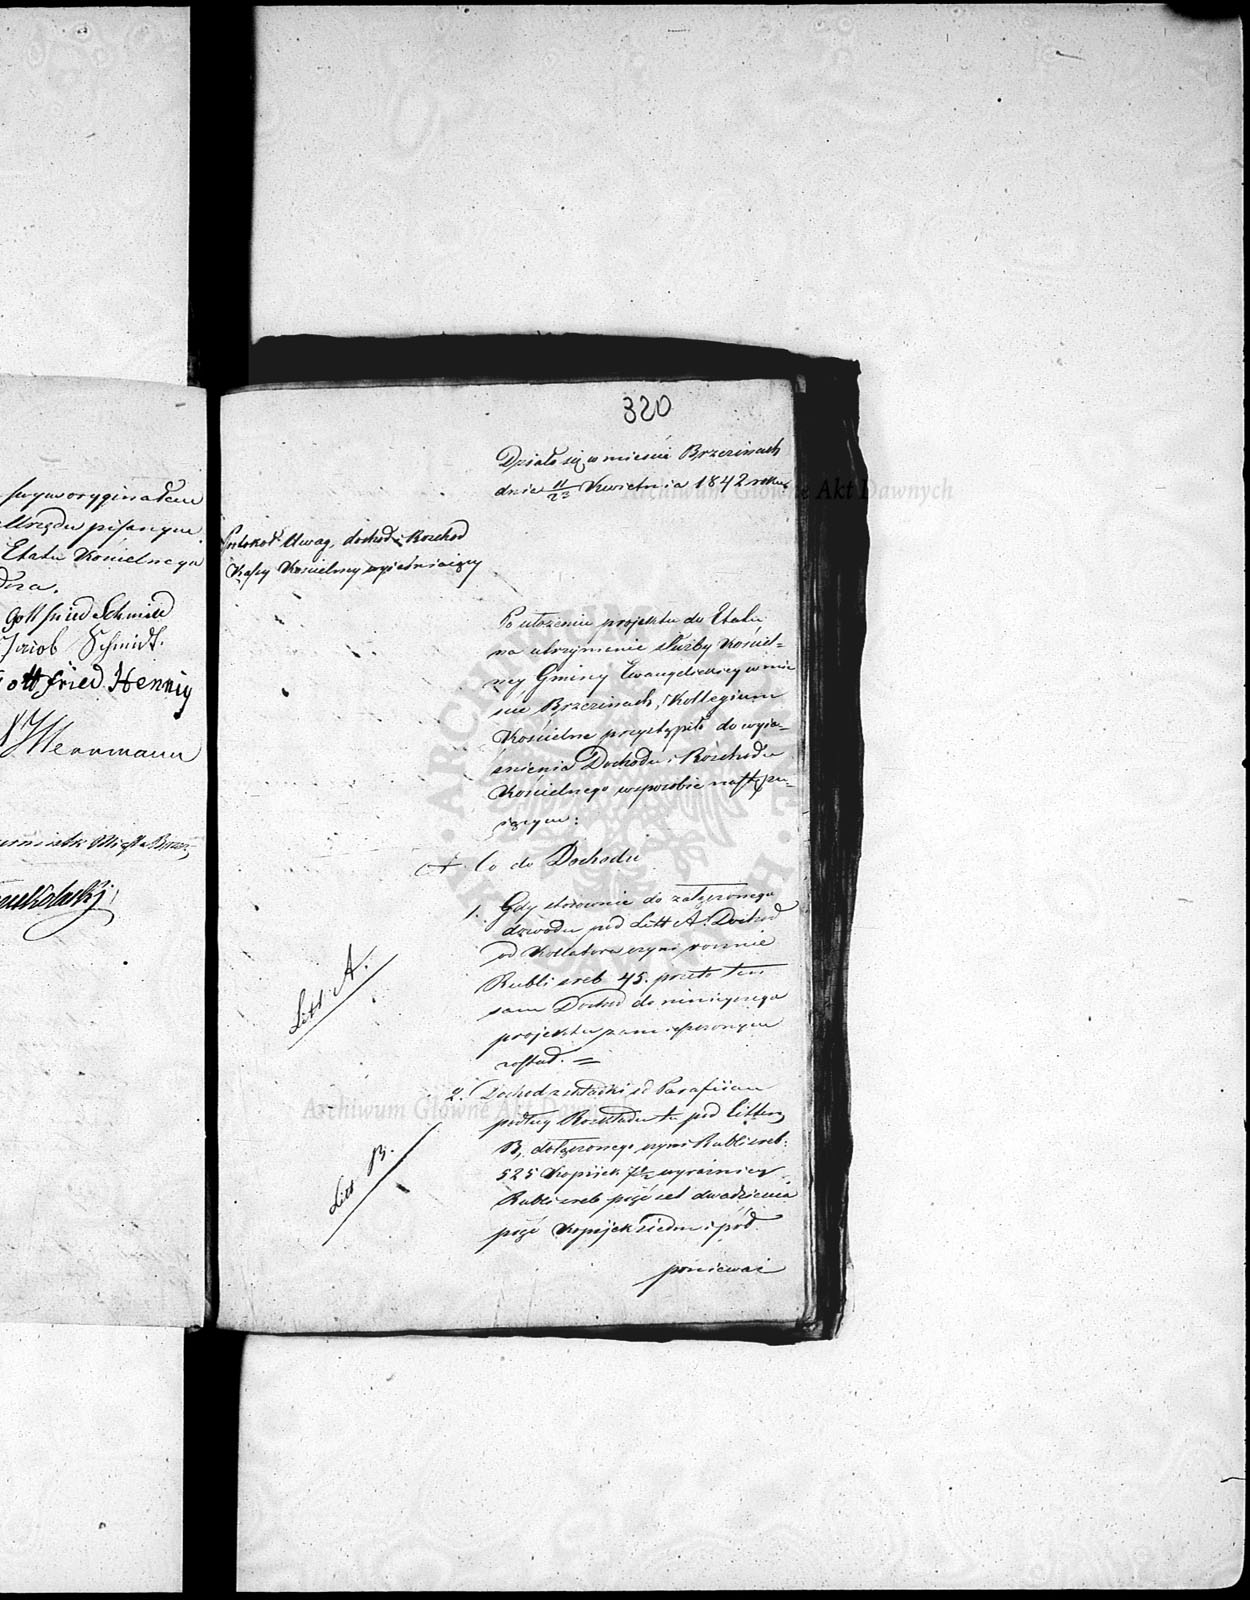 swym oryginałem
Urzędu pisanym
Etatu Kościelnego
Gottfried Schmidt
Jacob Schmidt.
Gottfried Hennig
Herrmann
Miasta Brzezin
320
Działo się w mieście Brzezinach
dnia 11/23 Kwietnia 1842 roku
Protokół Uwag, dochód i Rozchod
Kassy Kościelney wyjaśniaiący
Po ułożeniu projektu do Etatu
na utrzymanie służby Kościel-
ney Gminy Ewangelickiey w mie
ście Brzezinach, Kollegium
Kościelne przystąpiło do wyja-
śnienia Dochodu i Rozchodu
Kościelnego w sposobie następu-
iącym:
A Co do Dochodu
1. Gdy stosownie do załączonego
dowodu pod Litt A. Dochod
od Kollatora czyni rocznie
Rubli sreb 45. przeto ten
sam Dochod do niniejszego
projektu zamieszczonym
został. =
Litt A.
2. Dochod z składki od Parafiian
podług Rozkładu tu pod Litterą
B, dołączonego czyni Rubli sreb:
525 Kopijek 7½ wyraźniey
Rubli sreb pięćset dwadzieścia
pięć Kopijek siedm i pół
Litt B.
ponieważ
Archiwum Główne Akt Dawnych
Archiwum Główne Akt Dawnych
ARCHIWUM GŁÓWNE AKT DAWNYCH